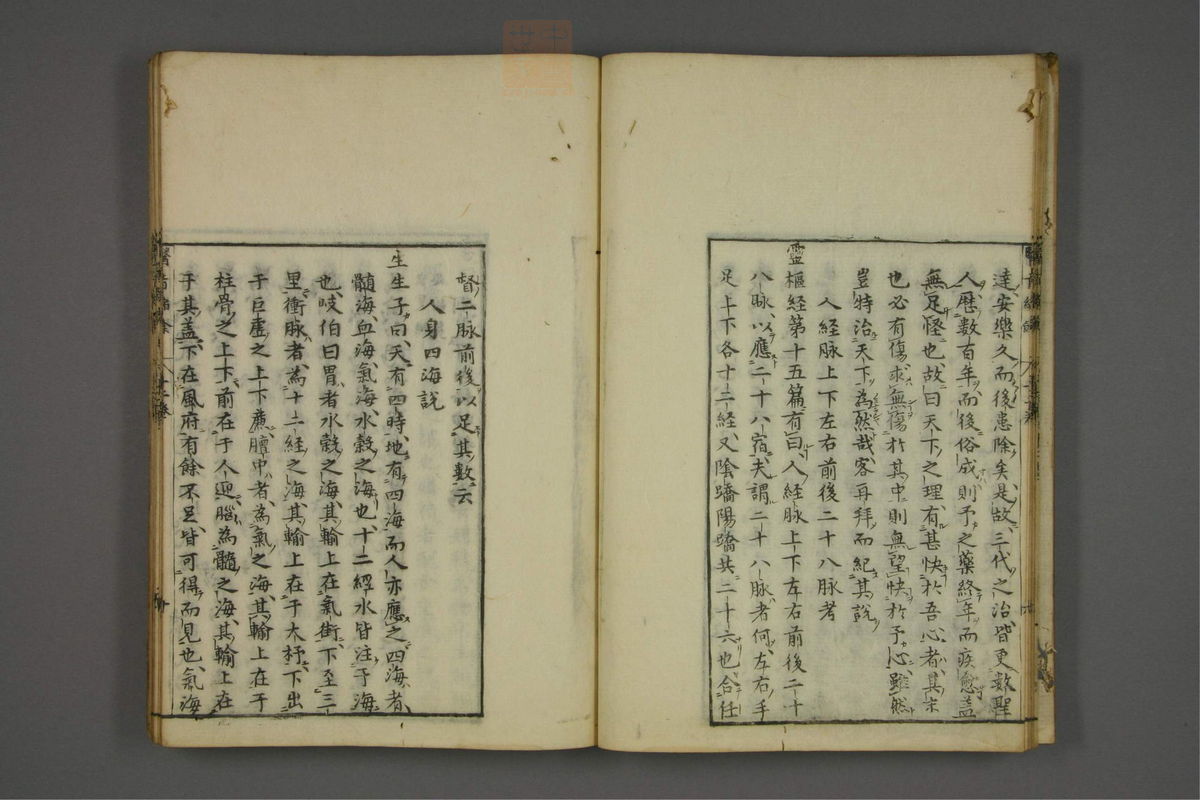 達安樂久而後患除矣是故三代之治皆更數聖
人歷數百年而後俗成則予之藥終年而疾愈蓋
無足怪也故曰天下之理有甚快於吾心者其末
也必有傷求無傷於其中則無望快於予心雖然
豈特治天下為然哉客再拜而紀其說
人經脉上下左右前後二十八脉考
靈樞經第十五篇有曰人經脉上下左右前後二十
八脉以應二十八宿夫謂二十八脉者何左右手
足上下各十二經又陰蹻陽蹻共二十六也合任
督二脉前後以足其數云
人身四海説
生生子曰天有四時地有四海而人亦應之四海者
髓海血海氣海水穀之海也十二經水皆注于海
也岐伯曰胃者水穀之海其輸上在氣街下至三
里衝脉者為十二經之海其輸上在于大杼下出
于巨虛之上下廉膻中者為氣之海其輸上在于
柱骨之上下前在于人迎腦為髓之海其輸上在
于其蓋下在風府有餘不足皆可得而見也氣海